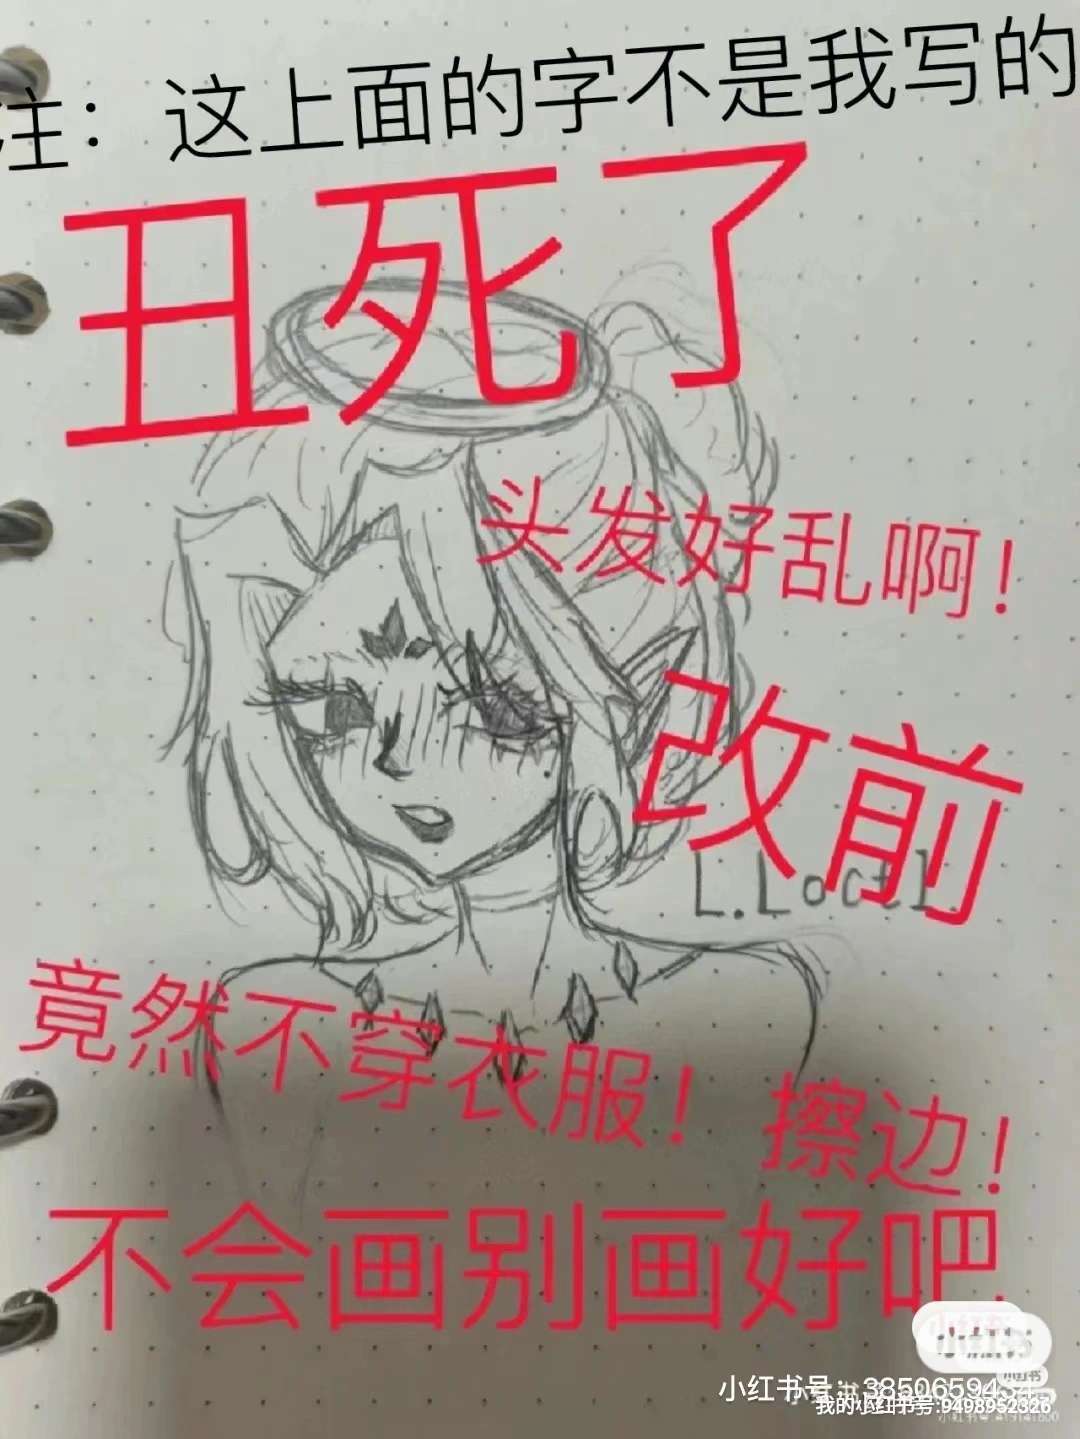 注：这上面的字不是我写的
丑死了
头发好乱啊！
改前
L.Loctl
竟然不穿衣服！擦边！
不会画别画好吧
小红书
小红书
小红书号：3850659434
我的小红书号:9498952326